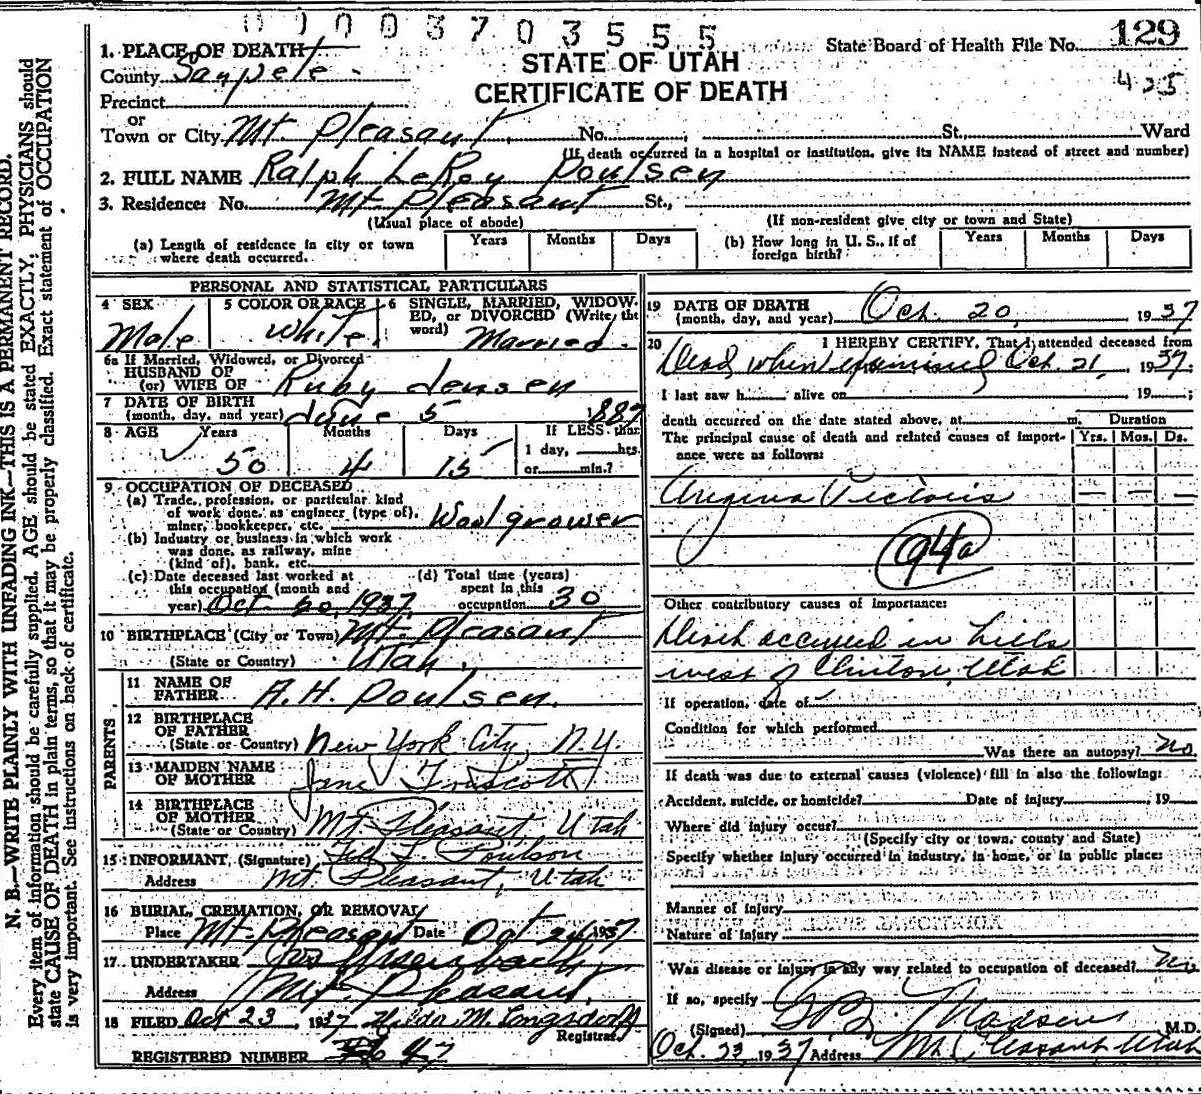 0 0 0 0 3 7 0 3 5 5 5
State Board of Health File No. 129
425
STATE OF UTAH
CERTIFICATE OF DEATH
1. PLACE OF DEATH
County Sanpete
Precinct
or
Town or City Mt. Pleasant No. St., Ward
(If death occurred in a hospital or institution, give its NAME instead of street and number)
2. FULL NAME Ralph LeRoy Poulsen
3. Residence: No. Mt. Pleasant St.,
(Usual place of abode) (If non-resident give city or town and State)
(a) Length of residence in city or town where death occurred. Years Months Days
(b) How long in U. S., if of foreign birth? Years Months Days
PERSONAL AND STATISTICAL PARTICULARS
4 SEX Male
5 COLOR OR RACE White
6 SINGLE, MARRIED, WIDOWED, or DIVORCED (Write the word) Married.
6a If Married, Widowed, or Divorced
HUSBAND OF
(or) WIFE OF Ruby Jensen
7 DATE OF BIRTH
(month, day, and year) June 5 1887
8 AGE Years Months Days If LESS than
50 4 15 1 day, hrs.
or min.?
9 OCCUPATION OF DECEASED
(a) Trade, profession, or particular kind
of work done, as engineer (type of),
miner, bookkeeper, etc. Wool grower
(b) Industry or business in which work
was done, as railway, mine
(kind of), bank, etc.
(c) Date deceased last worked at
this occupation (month and
year) Oct 20, 1937
(d) Total time (years)
spent in this
occupation 30
10 BIRTHPLACE (City or Town) Mt. Pleasant
(State or Country) Utah.
PARENTS
11 NAME OF
FATHER A. H. Poulsen.
12 BIRTHPLACE
OF FATHER
(State or Country) New York City, N.Y.
13 MAIDEN NAME
OF MOTHER Jane Truscott
14 BIRTHPLACE
OF MOTHER
(State or Country) Mt. Pleasant, Utah
15 INFORMANT, (Signature) L. Poulson
Address Mt. Pleasant, Utah
16 BURIAL, CREMATION, OR REMOVAL
Place Mt. Pleasant Date Oct 24 1937
17 UNDERTAKER
Address Mt. Pleasant.
18 FILED Oct 23, 1937 Hilda M. Longsdorf
Registrar
REGISTERED NUMBER 47
19 DATE OF DEATH
(month, day, and year) Oct. 20, 1937
20 I HEREBY CERTIFY, That I attended deceased from
Dead when examined Oct. 21, 1937;
I last saw h alive on 19 ;
death occurred on the date stated above, at m. Duration
The principal cause of death and related causes of importance were as follows: Yrs. Mos. Ds.
Angina Pectoris — — -
94a
Other contributory causes of importance:
Death occurred in hills
west of Clinton, Utah
If operation, date of
Condition for which performed
Was there an autopsy? No.
If death was due to external causes (violence) fill in also the following:
Accident, suicide, or homicide? Date of injury 19
Where did injury occur?
(Specify city or town, county and State)
Specify whether injury occurred in industry, in home, or in public place:
Manner of injury
Nature of injury
Was disease or injury in any way related to occupation of deceased? No
If so, specify
(Signed) Madsen M.D.
Oct. 23, 1937 Address Mt. Pleasant, Utah
N. B.—WRITE PLAINLY WITH UNFADING INK—THIS IS A PERMANENT RECORD.
Every item of information should be carefully supplied. AGE should be stated EXACTLY. PHYSICIANS should
state CAUSE OF DEATH in plain terms, so that it may be properly classified. Exact statement of OCCUPATION
is very important. See instructions on back of certificate.